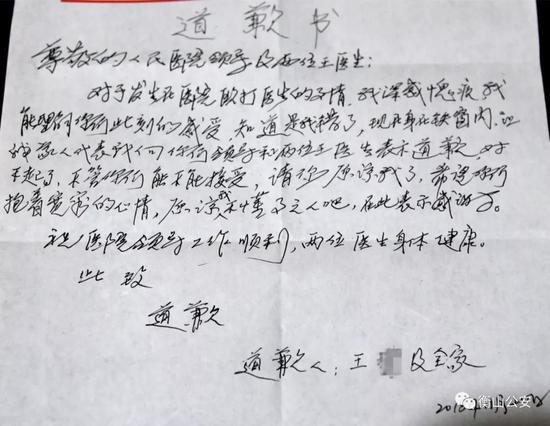 道歉书
尊敬的人民医院领导及两位王医生:
对于发生在医院殴打医生的事情,我深感愧疚,我
能理解你们此刻的感受,知道是我错了,现在身在铁窗内,让
我家人代表我们向你们领导和两位王医生表示道歉,对
不起了,不管你们能不能接受,请你原谅我了,希望你们
抱着宽容的心情,原谅我不懂事之人吧,在此表示感谢了。
祝医院领导工作顺利,两位医生身体健康。
此致
道歉
道歉人:王 及全家
衡山公安